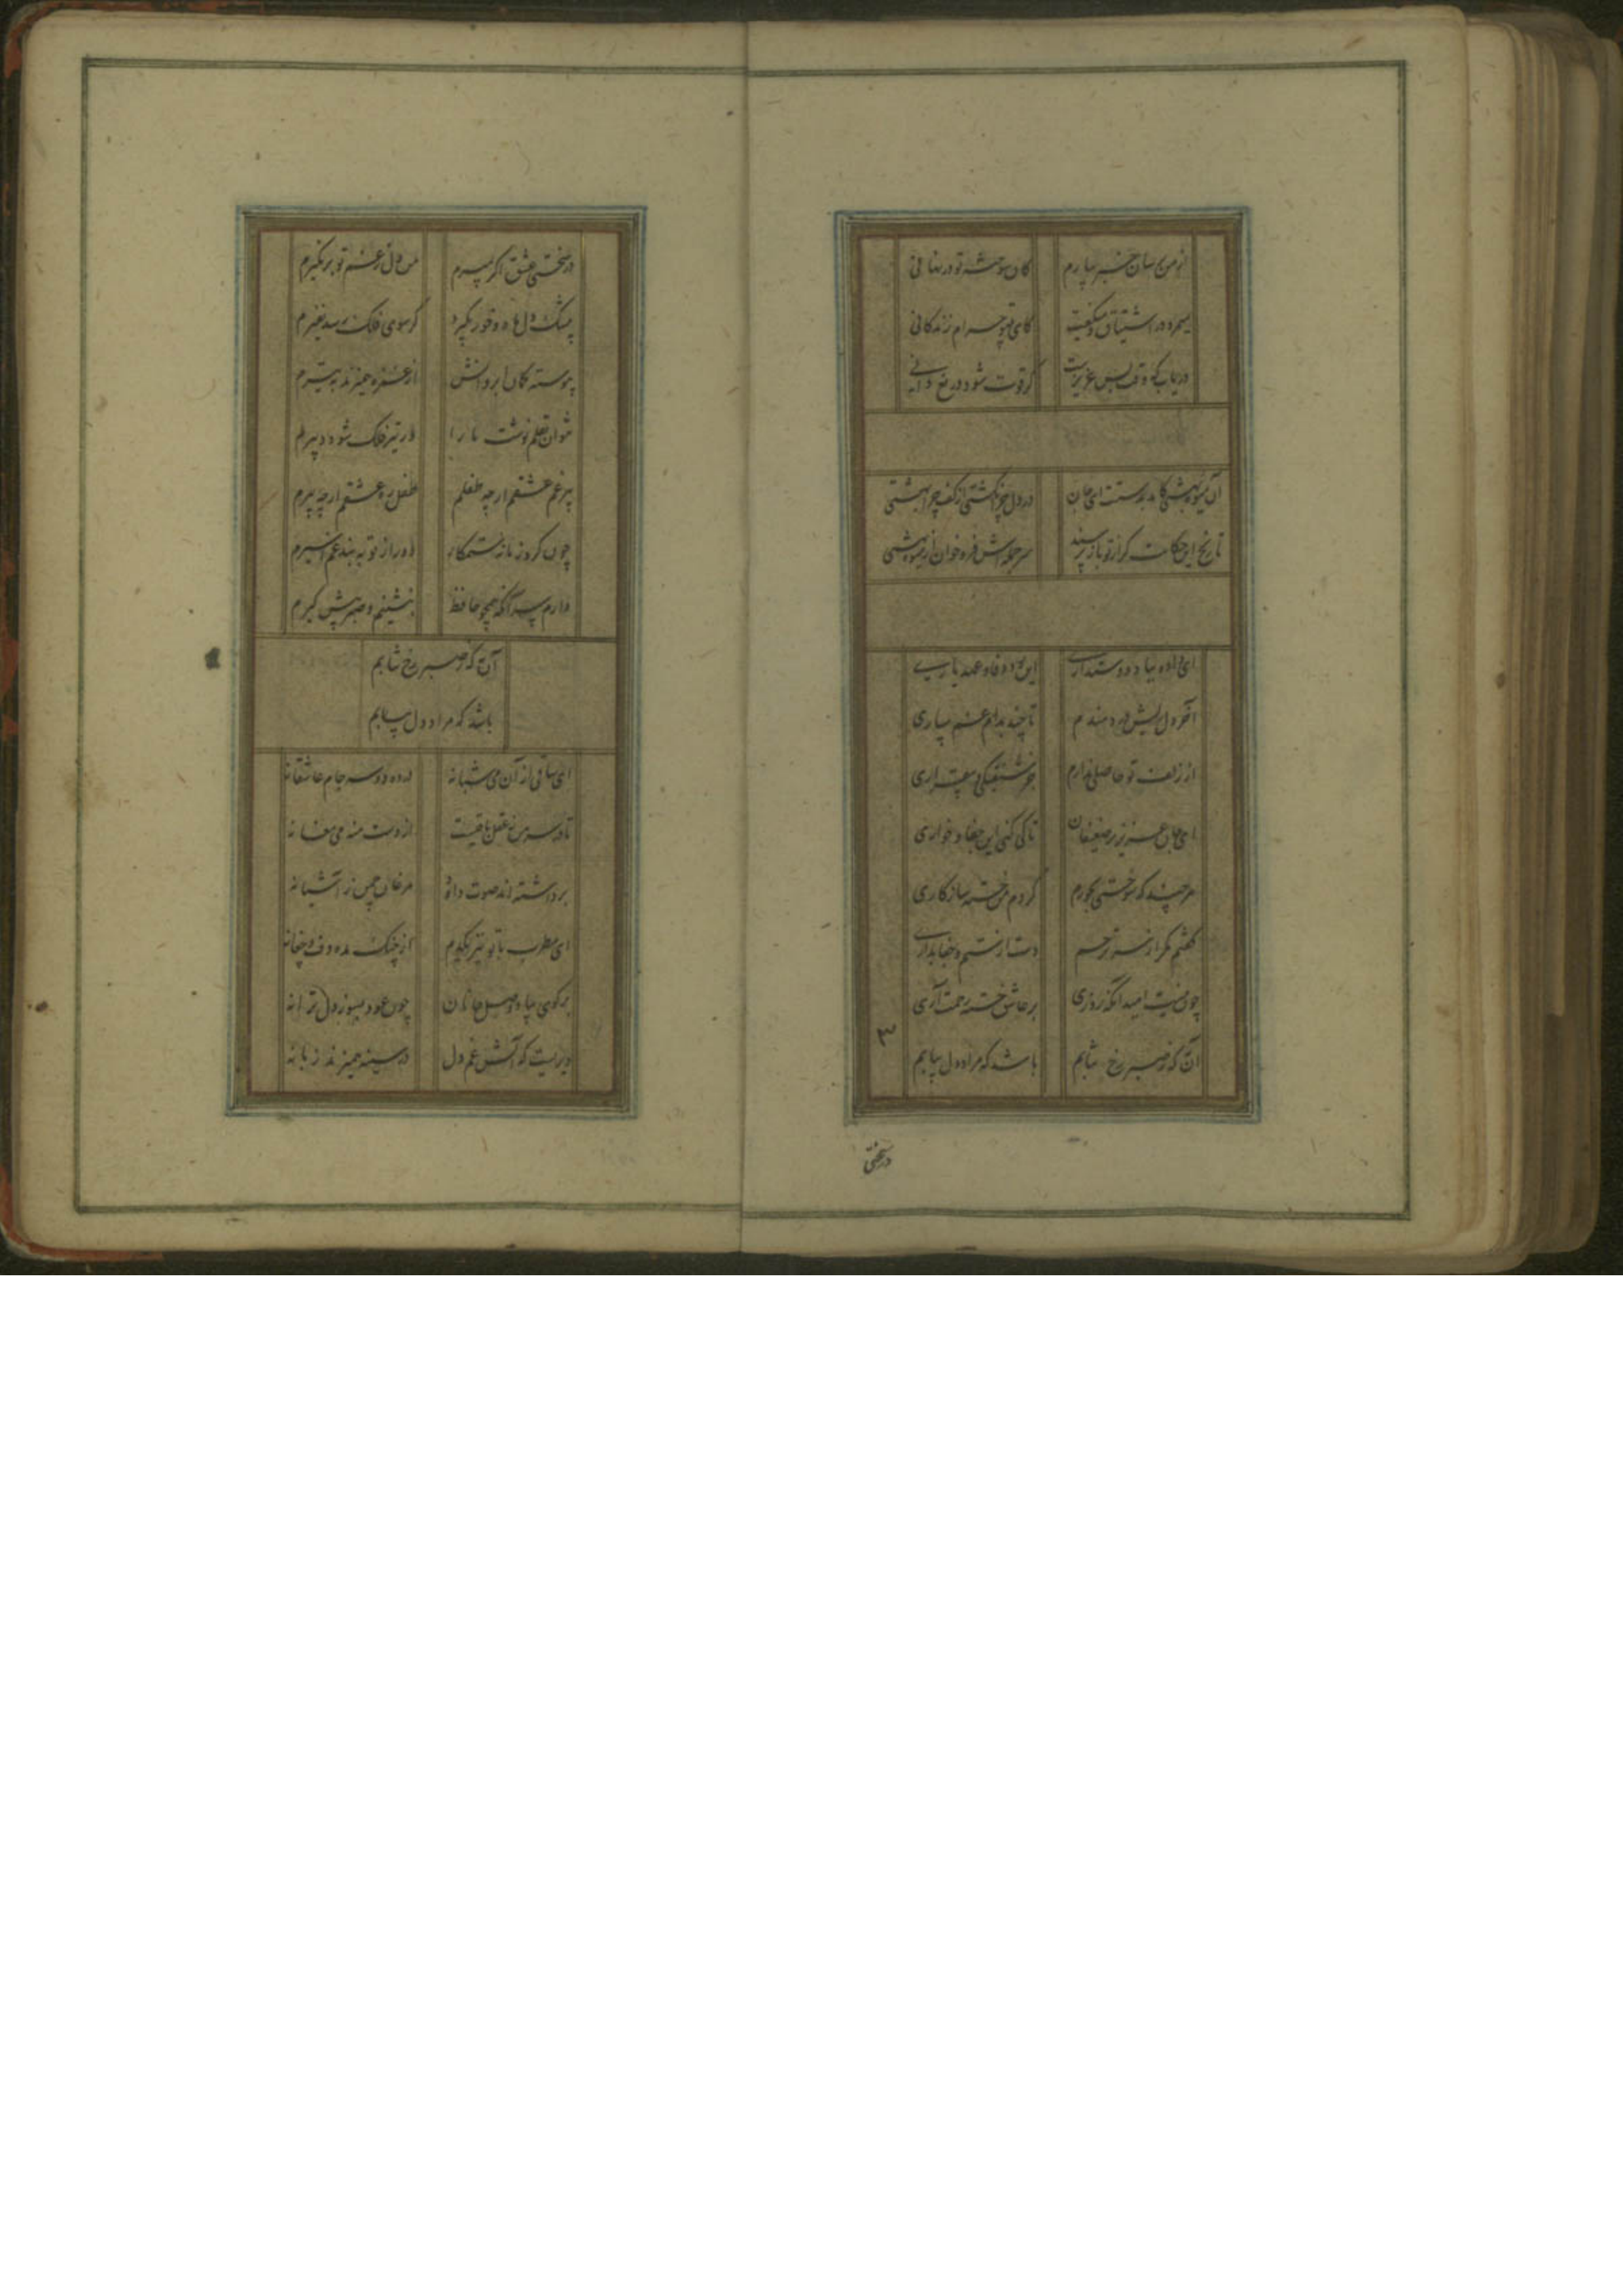 از من برسان خبر بیارم کان سوخته تو در نهانی
میمرد در اشتیاق و میگفت کای بیتو حرام زندگانی
دریاب که وقت بس عزیزست گر فوت شود دریغ دانی
آن میوه بهشتی کامد بدستت ای جان در دل چرا نکشتی از کف چرا بهشتی
تاریخ این حکایت گر از تو باز پرسند سر جمله‌اش فرو خوان از میوه بهشتی
ای داده بباد دوستداری این بود وفا و عهد یاری
آخر دل ریش دردمندم تا چند بدام غم سپاری
از زلف تو حاصلی ندارم جز شیفتگی و بیقراری
ای جان عزیز بر ضعیفان تا کی کنی این جفا و خواری
هر چند که سوختی بجورم کردم من خسته سازکاری
گفتم مگر از سر ترحم دست از ستم و جفا بداری
چون نیست امید آنکه روزی بر عاشق خسته رحمت آری
آن به که ز صبر رخ نتابم باشد که مراد دل بیابم
۳
در سختی
در سختی عشق اگر بمیرم من دل ز غم تو بر نگیرم
گر سوی فلک رسد نفیرم
پیوسته کمان ابروانش از غمزه همیزند به تیرم
نتوان بقلم نوشت ما را ار تیر فلک شود دبیرم
پیر غم عشقم ار چه طفلم طفل ره عشقم ار چه پیرم
چون کرد زمانه ستمکار
دارم سر آنکه همچو حافظ بنشینم و صبر پیش گیرم
آن به که ز صبر رخ نتابم
باشد که مراد دل بیابم
ای ساقی از آن می شبانه در ده دو سه جام عاشقانه
تا در سر من ز عقل باقیست از دست منه می مغانه
برداشته‌اند صوت داود مرغان چمن ز آشیانه
ای مطرب با تو نیز یکدم از چنگ مده دف و چغانه
بر گوی بیاد وصل جانان چون عود بسوز دل ترانه
دیریست که آتش غم دل در سینه همیزند زبانه